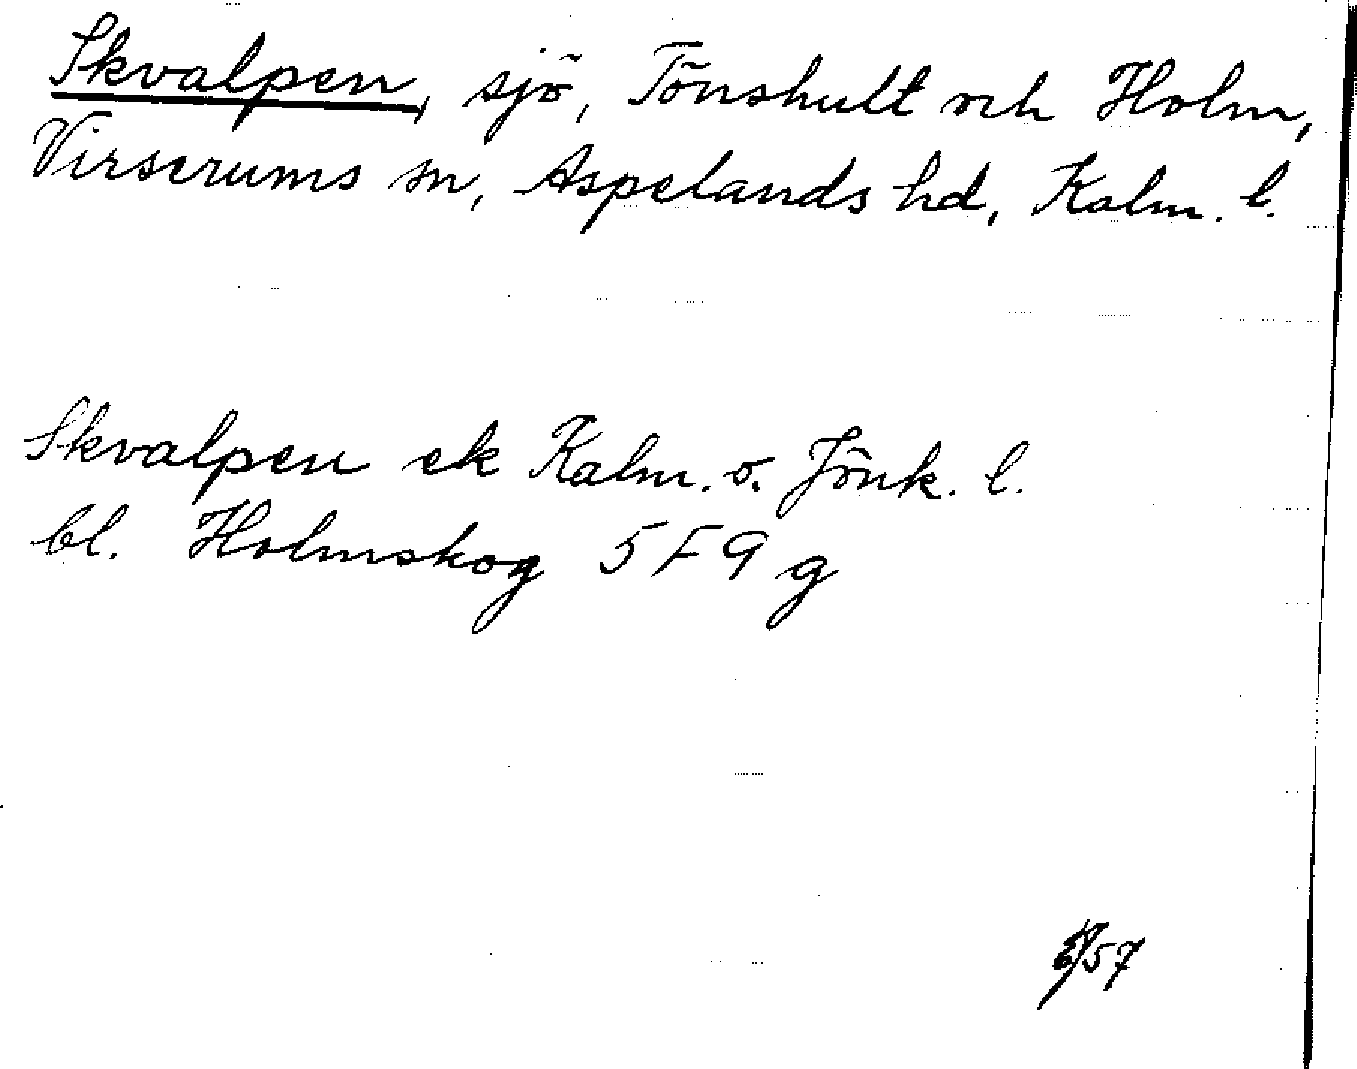 Skvalpen, sjö, Tönshult och Holm,
Virserums sn, Aspelands hd, Kalm. l.
Skvalpen ek Kalm. o. Jönk. l.
bl. Holmskog 5 F 9 g
57